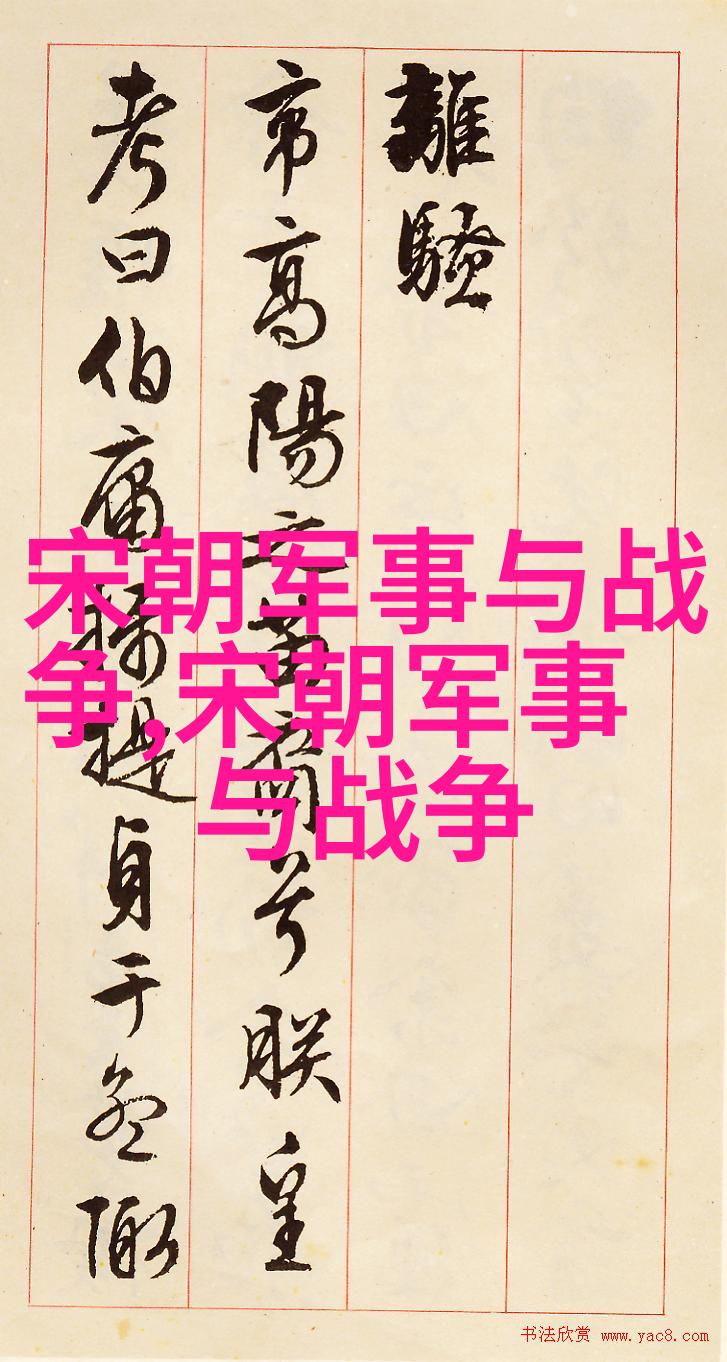 離騷
帝高陽之苗裔兮朕皇
考曰伯庸攝提貞于孟陬
宋朝军事与战
争,宋朝军事
与战争
书法欣赏 www.yac8.com